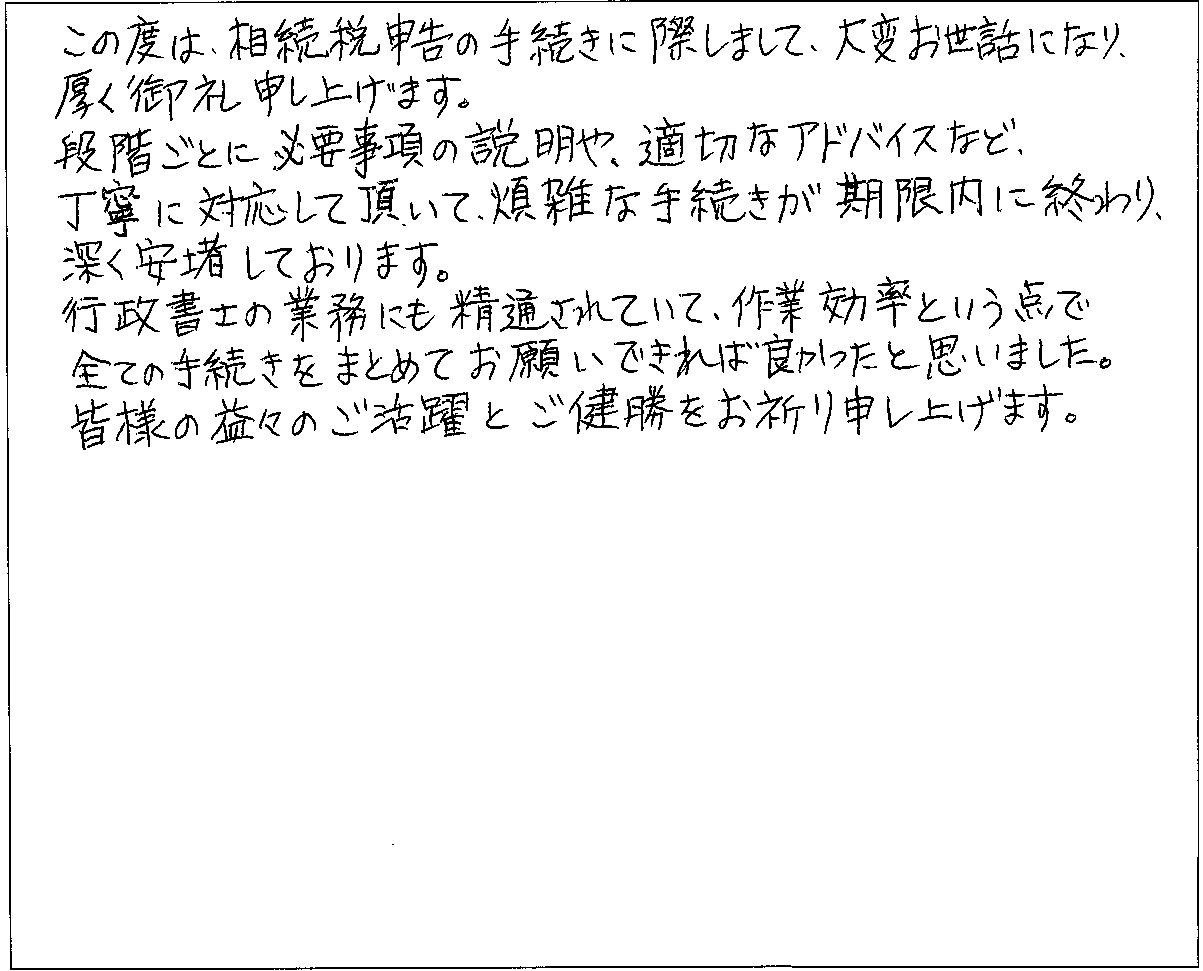 この度は、相続税申告の手続きに際しまして、大変お世話になり、
厚く御礼申し上げます。
段階ごとに必要事項の説明や、適切なアドバイスなど、
丁寧に対応して頂いて、煩雑な手続きが期限内に終わり、
深く安堵しております。
行政書士の業務にも精通されていて、作業効率という点で
全ての手続きをまとめてお願いできれば良かったと思いました。
皆様の益々のご活躍とご健勝をお祈り申し上げます。